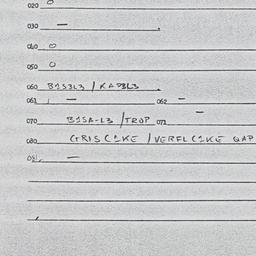 020 0
030 —
040 0
050 0
060 B1S3L3 / KAP3L3
061 — 062 —
070 B1SA-L3 / TROP 071 —
080 GRISC1KE / VERFLC1KE GAP
081 —